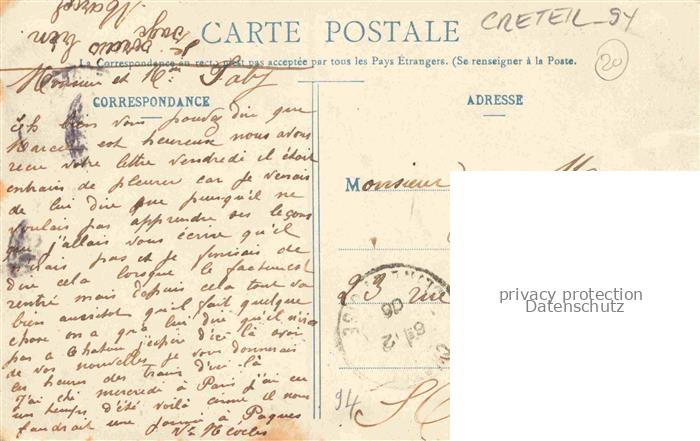 CRETEIL _ 94
20
CARTE POSTALE
La Correspondance au recto n'est pas acceptée par tous les Pays Étrangers. (Se renseigner à la Poste.
CORRESPONDANCE
ADRESSE
Monsieur et Mme Faby
Eh bien vous pouvez dire que
Marcel est heureuse nous avons
recu votre lettre vendredi il était
entrain de pleurer car je venais
de lui dire que puisqu'il ne
voulais pas apprendre ses leçons
que j'allais vous écrire qu'il
pas et je finisais de
dire cela lorsque le facteur est
rentré mais depuis cela tout va
bien aussitot qu'il fait quelque
chose on a qu'à lui dire qu'il n'ira
pas a Chatou j'espère d'ici là avoir
de vos nouvelles je vous donnerais
les heures des trains d'ici là
J'ai été mercredi à Paris j'ai eu
un temps d'été voilà comme il nous
faudrait une journée à Paques
Vve
Je
serais bien
sage
Marcel
Monsieur
23 rue
94
privacy protection
Datenschutz